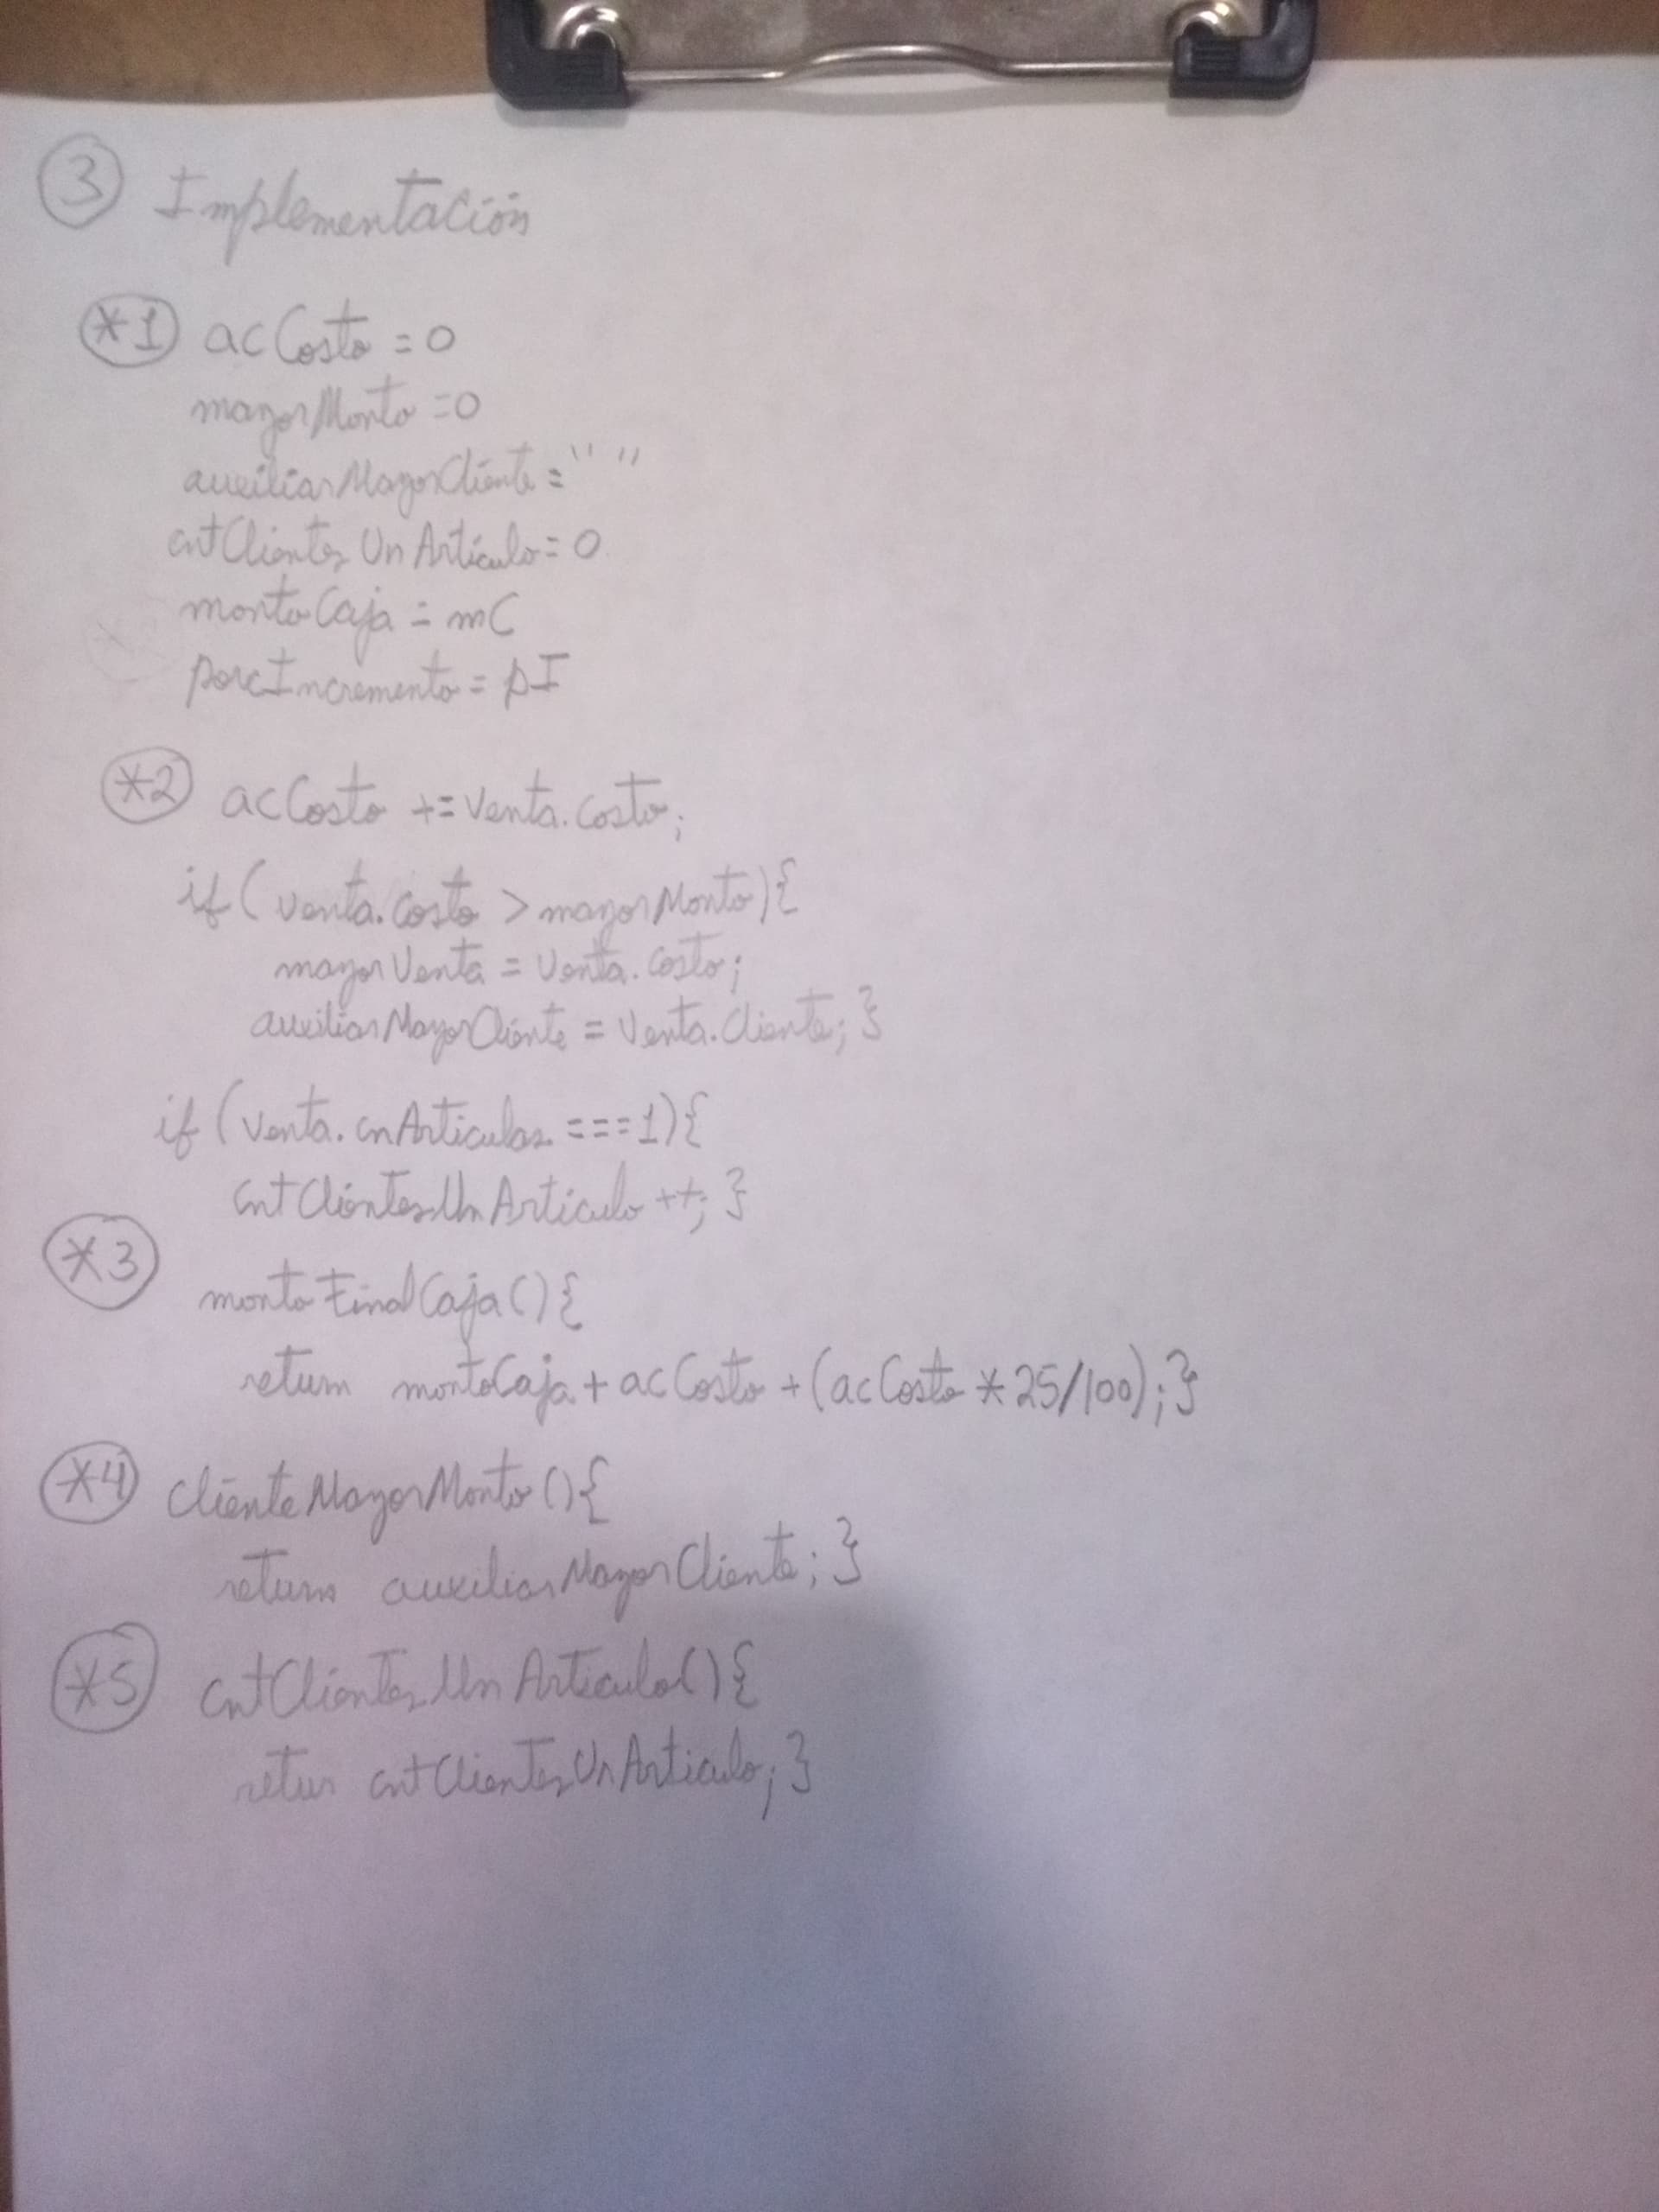 3 Implementación
*1 acCosto = 0
mayorMonto = 0
auxiliarMayorCliente = " "
cntClientesUnArtículo = 0
montoCaja = mC
porcIncremento = pI
*2 acCosto += venta.costo;
if (venta.costo > mayorMonto){
mayorVenta = venta.costo;
auxiliarMayorCliente = venta.cliente; }
if (venta.cnArticulos === 1){
cntClientesUnArtículo ++; }
*3
montoFinalCaja(){
return montoCaja + acCosto + (acCosto * 25/100); }
*4 clienteMayorMonto(){
return auxiliarMayorCliente; }
*5 cntClientesUnArticulo(){
retur cntClientesUnArticulo; }